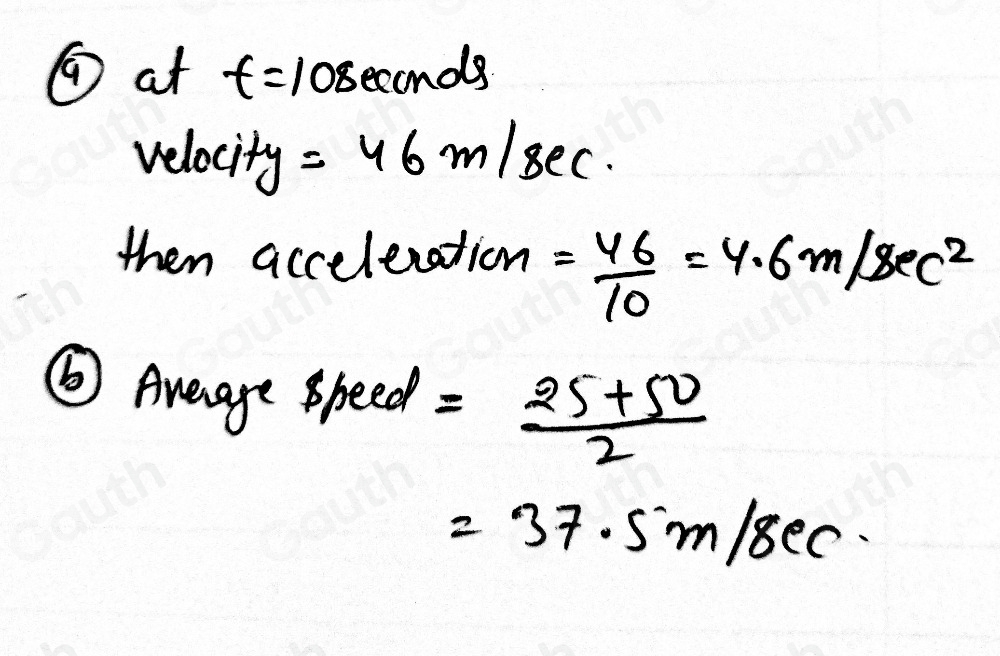 (a) at t=10seconds
velocity = 46 m/sec.
then acceleration = 46/10 = 4.6 m/sec²
(b) Average speed = 25+50/2
= 37.5 m/sec.
Gauth